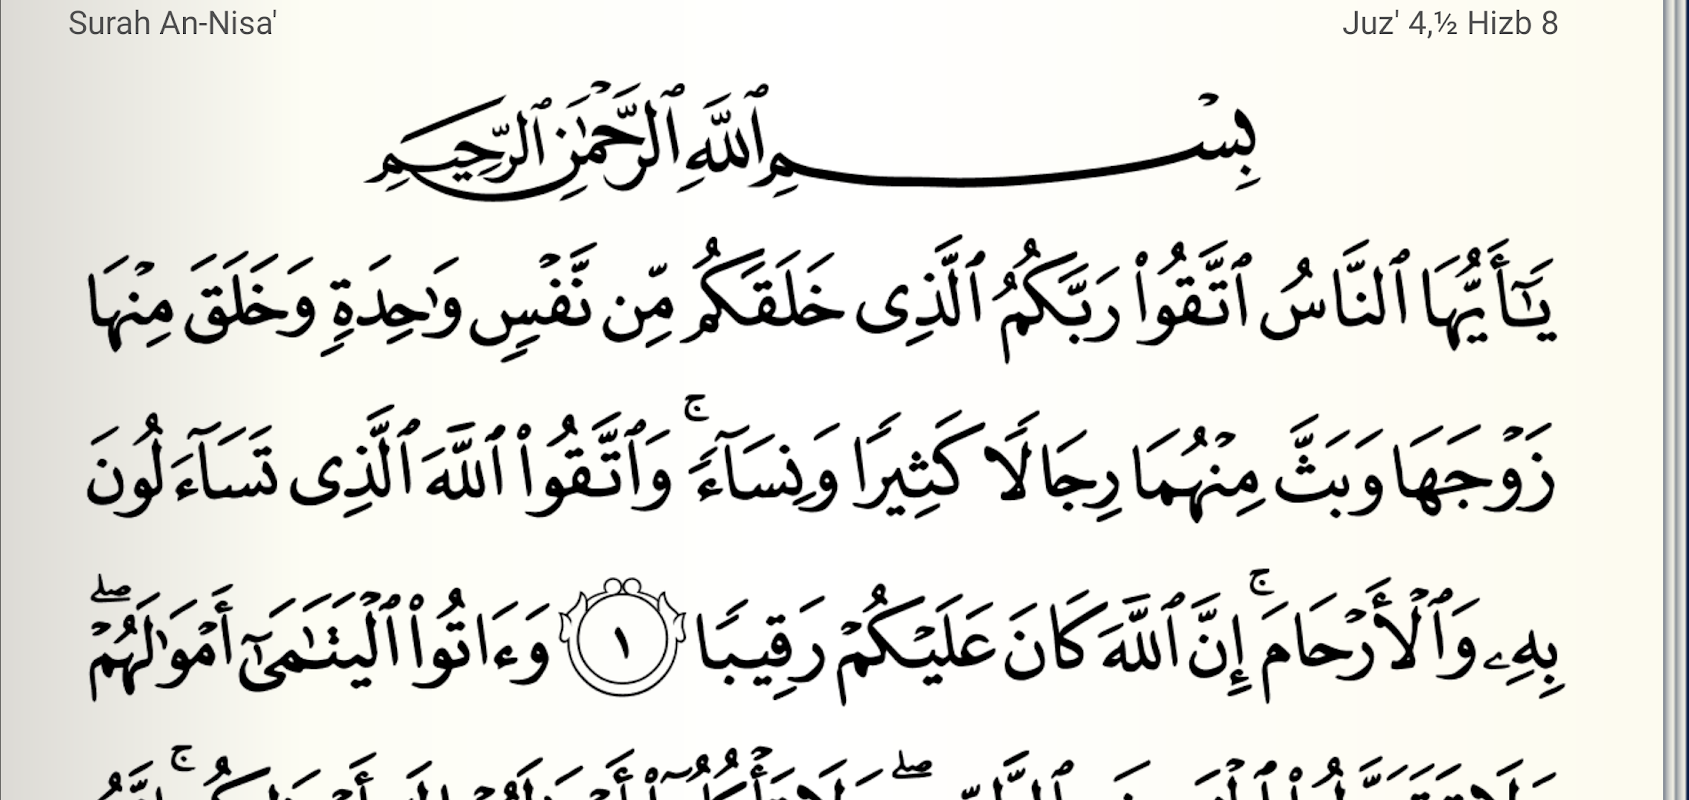 Surah An-Nisa' Juz' 4,½ Hizb 8
بِسْمِ ٱللَّهِ ٱلرَّحْمَٰنِ ٱلرَّحِيمِ
يَٰٓأَيُّهَا ٱلنَّاسُ ٱتَّقُوا۟ رَبَّكُمُ ٱلَّذِى خَلَقَكُم مِّن نَّفْسٍ وَٰحِدَةٍ وَخَلَقَ مِنْهَا
زَوْجَهَا وَبَثَّ مِنْهُمَا رِجَالًا كَثِيرًا وَنِسَآءً ۚ وَٱتَّقُوا۟ ٱللَّهَ ٱلَّذِى تَسَآءَلُونَ
بِهِۦ وَٱلْأَرْحَامَ ۚ إِنَّ ٱللَّهَ كَانَ عَلَيْكُمْ رَقِيبًا ١ وَءَاتُوا۟ ٱلْيَتَٰمَىٰٓ أَمْوَٰلَهُمْ ۖ